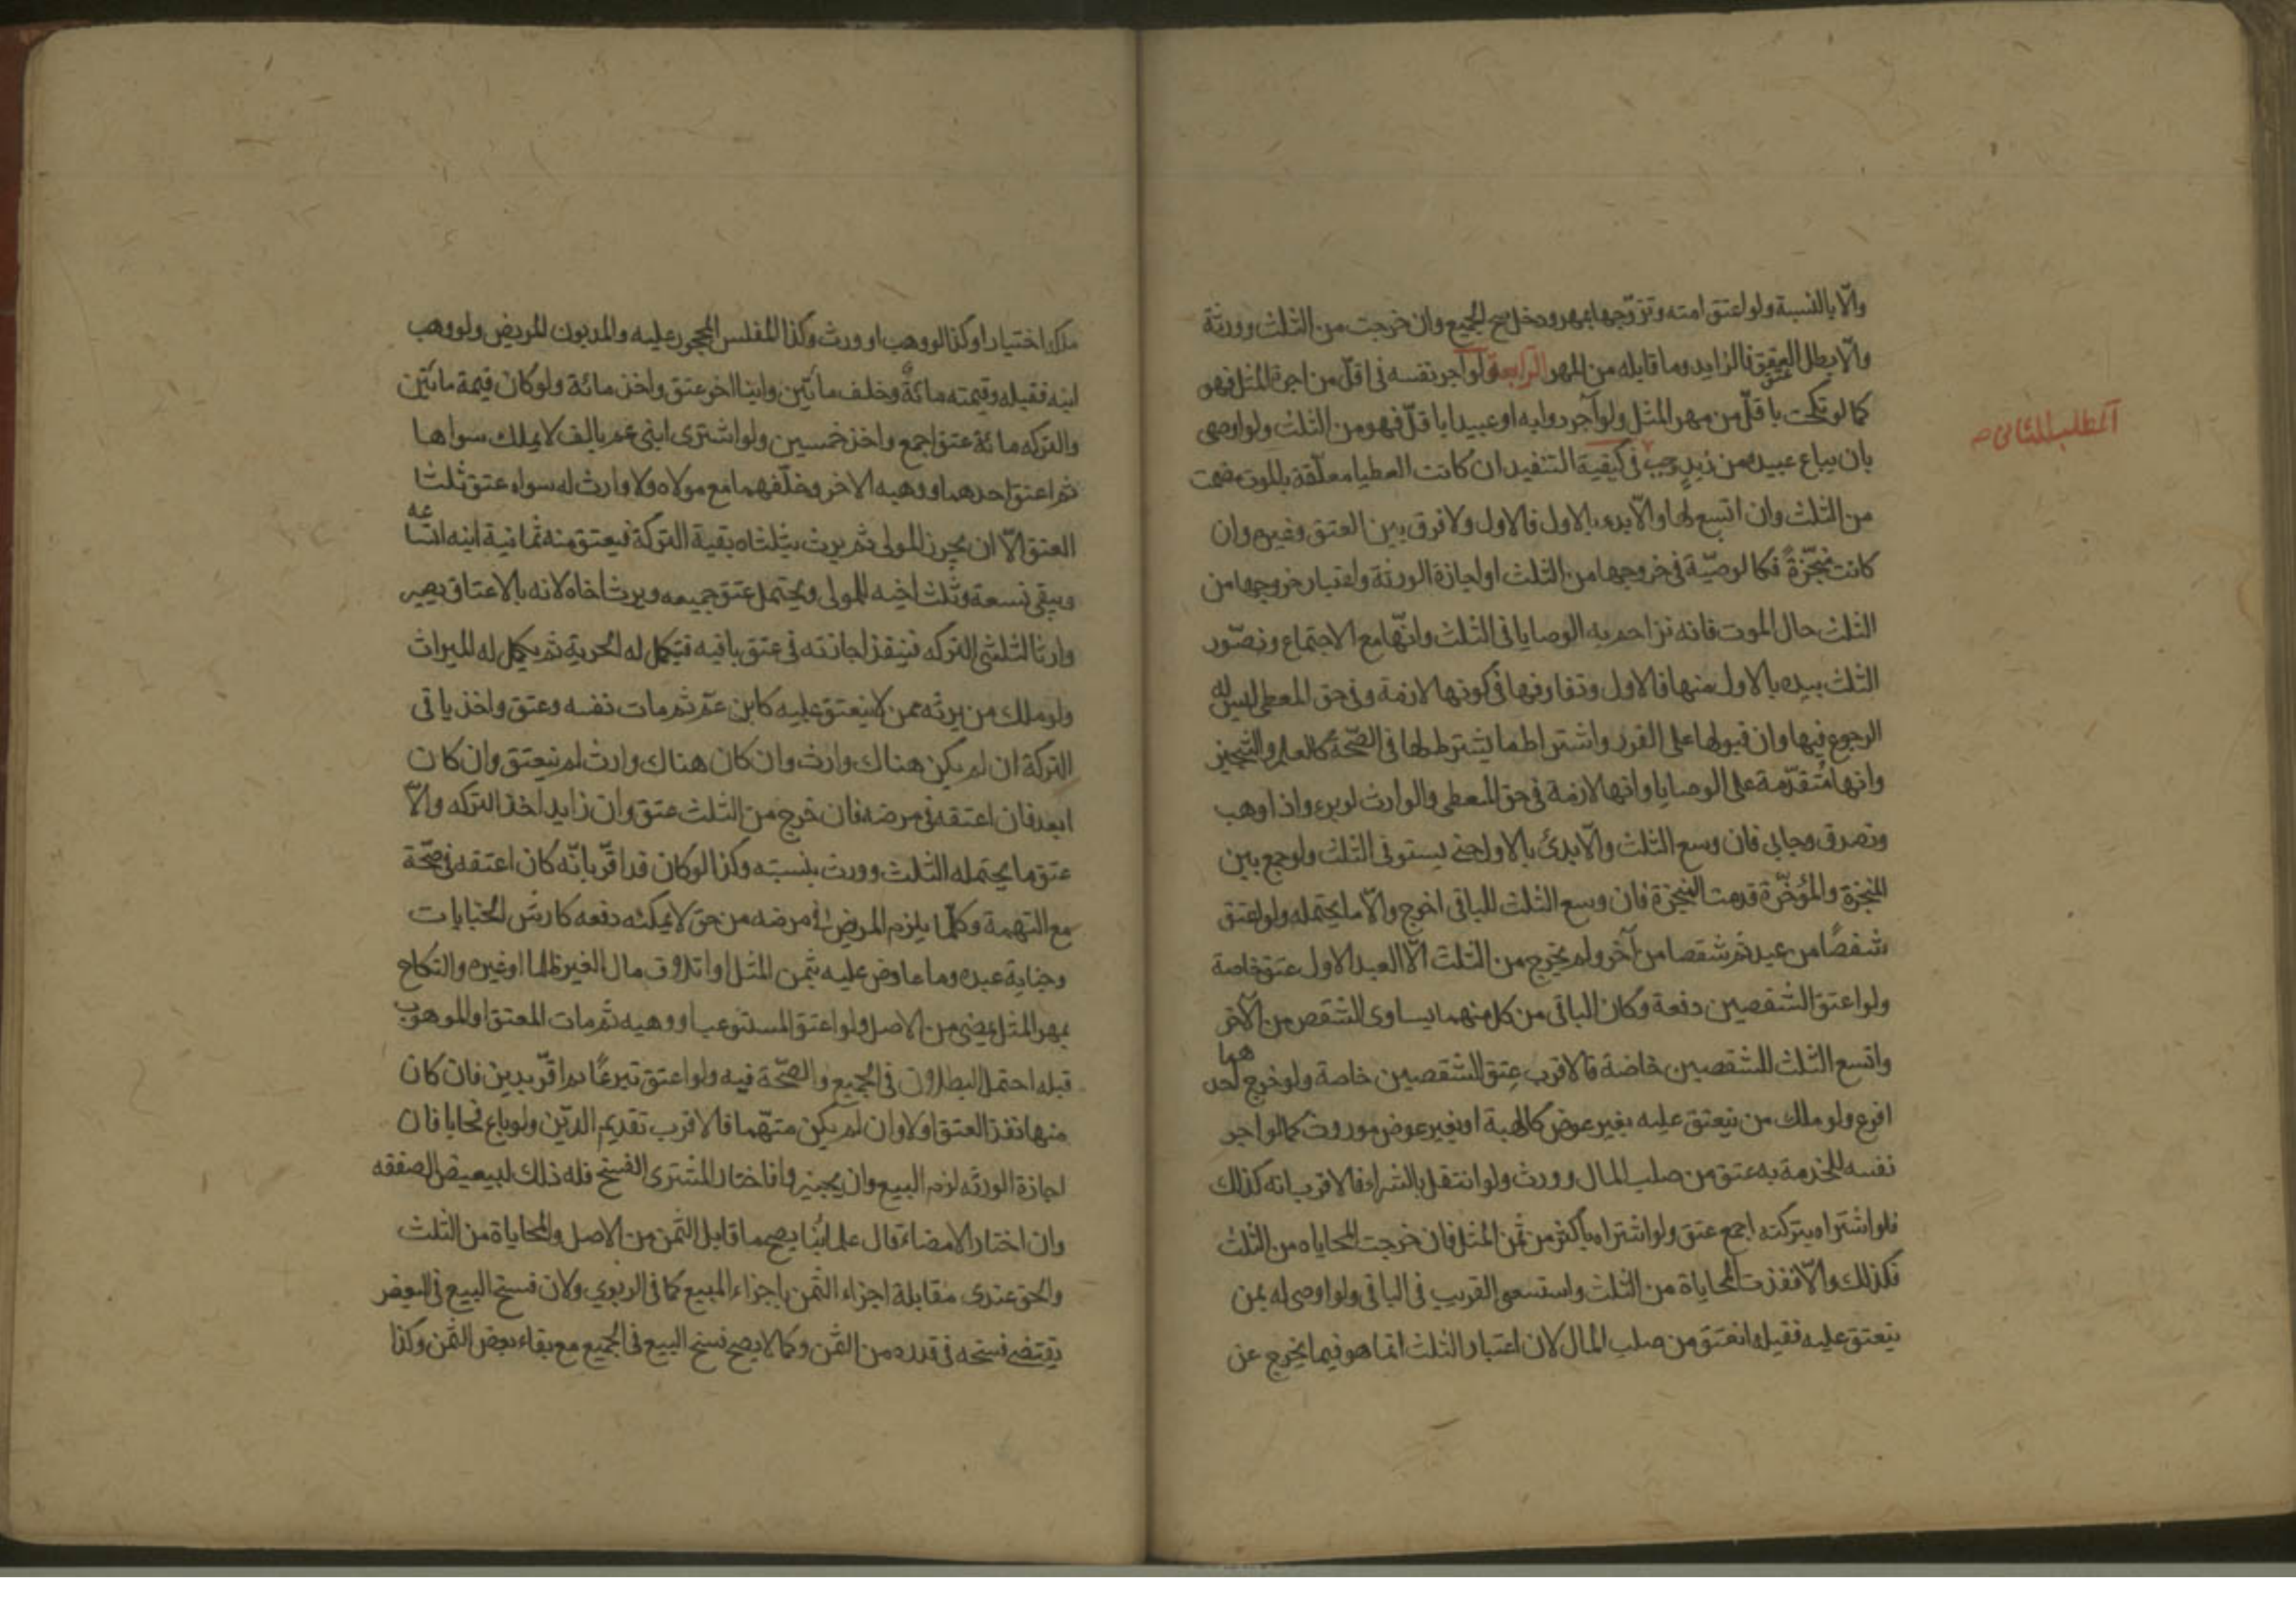 والّا بالنسبة ولو اعتق امته وتزوّجها بمهر ودخل صح الجميع وان خرجت من الثلث وورثة
والّا بطل العتق فالزايد وما قابله من المهر الرابعة ولو آجر نفسه فى اقلّ من اجرة المثل فهو
عتق
المطلب الثانى ص
كما لو نكحت باقلّ من مهر المثل ولو آجر دوابه او عبيدا باقلّ فهو من الثلث ولو اوصى
بان يباع عبيده من زيدٍ وجب فى كيفية التنفيد ان كانت العطيا معلّقة بالموت فمت
من الثلث وان اتسع لها والّا بدىء بالاول فالاول ولا فرق بين العتق وغيره وان
كانت منجّزةً فكالوصيّة فى خروجها من الثلث او اجازة الورثة واعتبار خروجها من
الثلث حال الموت فانه تزاحم به الوصايا فى الثلث وانّها مع الاجتماع وتصّور
الثلث بيده بالاول منها فالاول وتفارقها فى كونها لازمة وفى حق المعطى ليس له
الرجوع فيها وان قبولها على الفور واشتراطها يشترط لها فى الصّحة كالعلم والتنجيز
وانها متقدّمة على الوصايا وانها لازمة فى حق المعطى والوارث لو برء واذا وهب
وتصدق وحابى فان وسع الثلث والّا بدئ بالاول حتى يستوفى الثلث ولو جمع بين
المنجزة والمؤخّرة قدمت المنجزة فان وسع الثلث للباقى اخرج والّا ما يحتمله ولو اعتق
شقصًا من عبد ثم شقصا من آخر ولم يخرج من الثلث الّا العبد الاول عتق خاصة
ولو اعتق الشقصين دفعة وكان الباقى من كل منهما يساوى الشقص من الآخر
واتسع الثلث للشقصين خاصة فالاقرب عتق الشقصين خاصة ولو خرج احد هما
اقرع ولو ملك من ينعتق عليه بغير عوض كالهبة او بغير عوض موروث كما لو اجر
نفسه للخدمة به عتق من صلب المال وورث ولو انتقل بالشراء فالاقرب انه كذلك
فلو اشتراه بتركته اجمع عتق ولو اشتراه باكثر من ثمن المثل فان خرجت المحاباه من الثلث
فكذلك والّا نفذت المحاباة من الثلث واستسعى القريب فى الباقى ولو اوصى له بمن
ينعتق عليه فقبله انعتق من صلب المال لان اعتبار الثلث انما هو فيما يخرج عن
ملكه اختيارا وكذا لو وهب او ورث وكذا المفلس المحجور عليه والمديون المريض ولو وهب
ابنه فقبله وقيمته مائةٌ وخلف مأتين وابنا اخر عتق واخذ مائة ولو كان قيمة مائتين
والتركه مائة عتق اجمع واخذ خمسين ولو اشترى ابنى عم بالف لا يملك سواها
ثم اعتق احدهما ووهبه الاخر وخلّفهما مع مولاه ولا وارث له سواه عتق ثلثا
العتق الّا ان يحرز المولى ثم يرث بثلثاه بقية التركة فيعتق منه ثمانية ابنه اتساعه
ويبقى تسعة وثلث اخيه للمولى ويحتمل عتق جميعه ويرث اخاه لانه بالاعتاق يصير
وارثا لثلثى التركه فينفذ اجازته فى عتق باقيه فتكمل له الحرية ثم يكمل له الميراث
ولو ملك من يرثه ممن لا ينعتق عليه كابن عمّ ثم مات نفسه وعتق واخذ باقى
التركة ان لم يكن هناك وارث وان كان هناك وارث لم ينعتق وان كان
ابعد فان اعتقه فى مرضه فان خرج من الثلث عتق وان زايد اخذ التركه والّا
عتق ما يحتمله الثلث وورث بنسبته وكذا لو كان قد اقرّ بانّه كان اعتقه فى صحّة
مع التهمة وكلّما يلزم المريض فى مرضه من حق لا يمكنه دفعه كارش الجنايات
وجناية عبده وما عاوض عليه بثمن المثل او اتلاف مال الغير ظلما او غيره والنكاح
بمهر المثل يمضى من الاصل ولو اعتق المستوعب او وهبه ثم مات المعتق او الموهوب
قبله احتمل البطلان فى الجميع والصّحة فيه ولو اعتق تبرعًا ثم اقرّ بدين فان كان
منها نفذ العتق اولا وان لم يكن متّهما فالاقرب تقديم الدّين ولو باع محابا فان
اجازة الورثه لزم البيع وان يجيزوا فاختار المشترى الفسخ فله ذلك لتبعيض الصفقه
وان اختار الامضاء قال علمائنا يصح ما قابل الثمن من الاصل والمحاباة من الثلث
والحق عندى مقابلة اجزاء الثمن باجزاء المبيع كما فى الربوي ولان فسخ البيع فى البعض
يقتضى فسخه فى قدره من الثمن وكما لا يصح فسخ البيع فى الجميع مع بقاء بعض الثمن وكذا